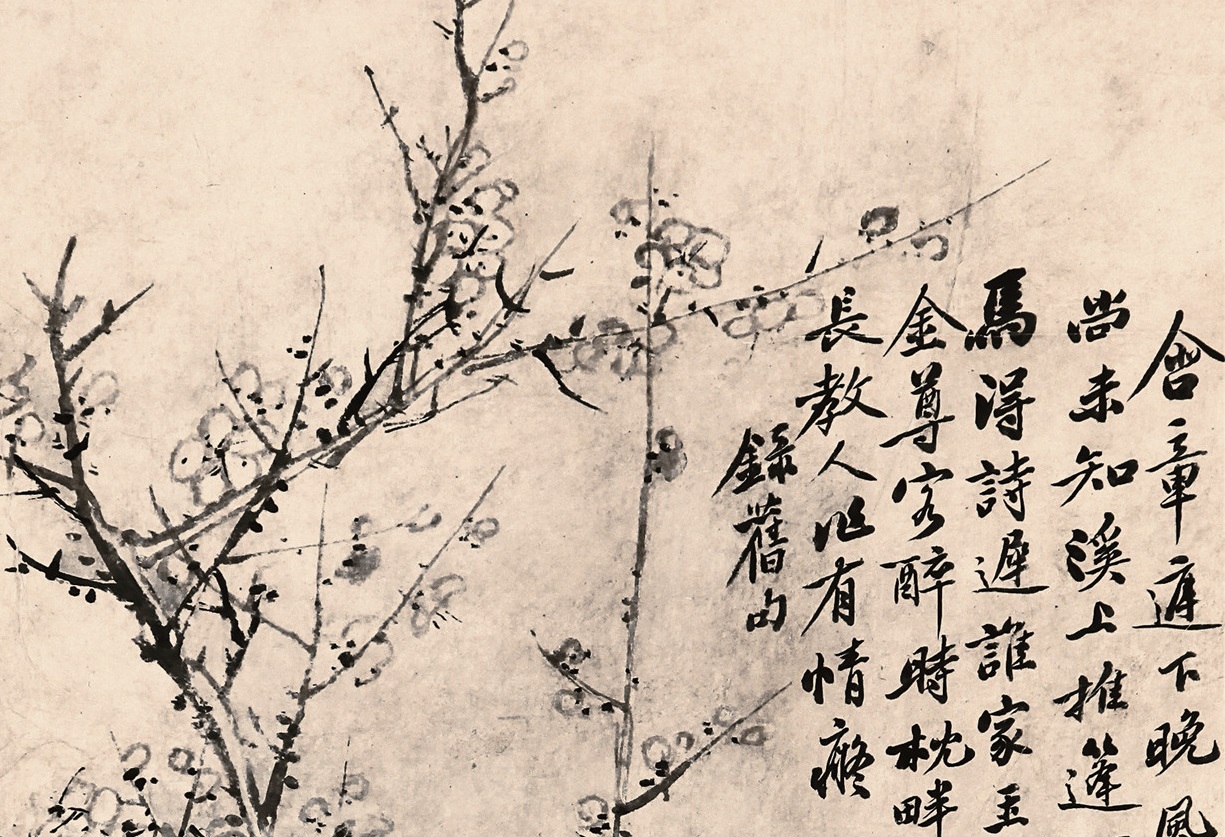 含章簷下晚風
尚未知溪上推篷
馬得詩遲誰家玉
金尊客醉時枕畔
長教人作有情癡
錄舊句